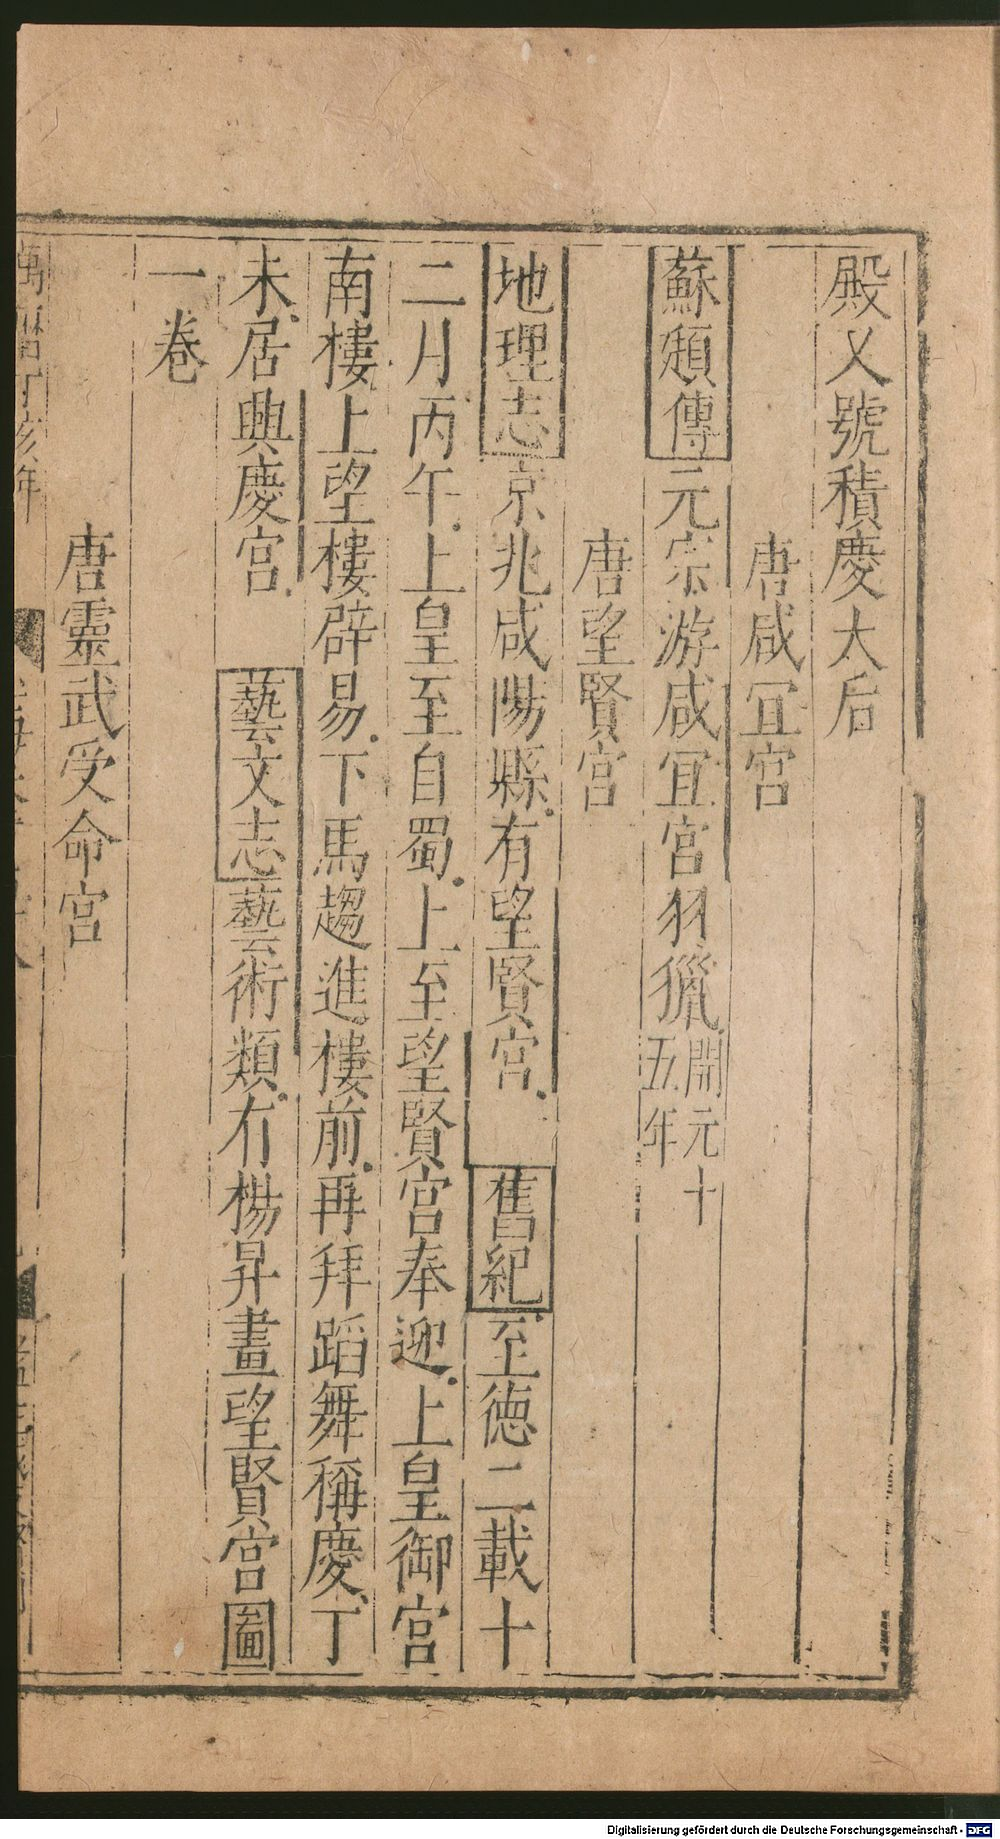 殿又號積慶太后
唐咸冝宮
蘇頲傳元宗游咸冝宮羽獵開元十五年
唐望賢宮
地理志京兆咸陽縣有望賢宮舊紀至德二載十
二月丙午上皇至自蜀上至望賢宮奉迎上皇御宮
南樓上望樓辟易下馬趨進樓前再拜蹈舞稱慶丁
未居興慶宮藝文志藝術類有楊昇畫望賢宮圖
一卷
唐靈武受命宮
萬曆丁亥年
Digitalisierung gefördert durch die Deutsche Forschungsgemeinschaft - DFG